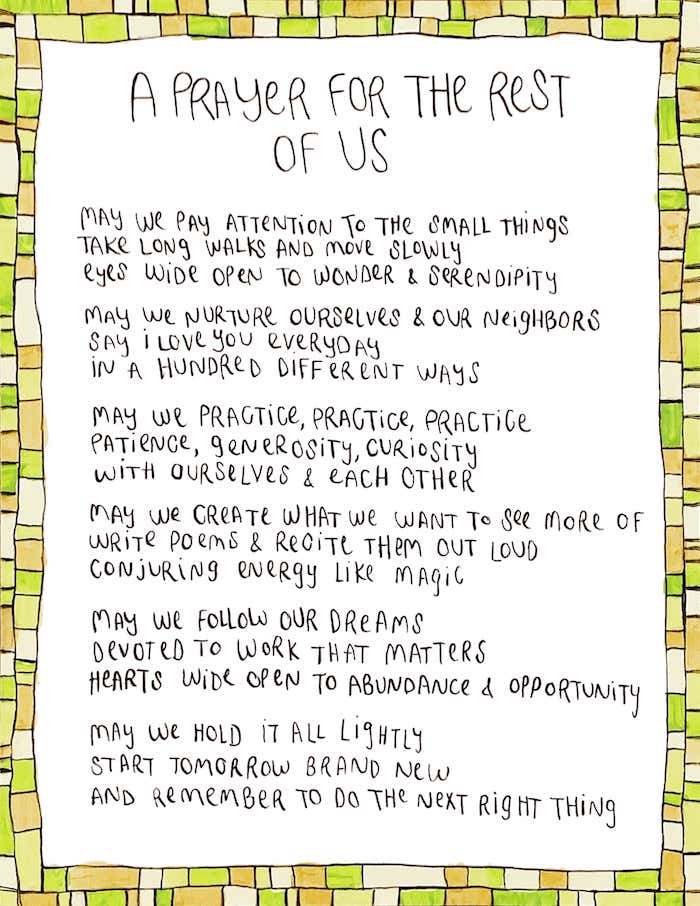 A PRAYER FOR THE REST
OF US
MAY WE PAY ATTENTION TO THE SMALL THINGS
TAKE LONG WALKS AND MOVE SLOWLY
EYES WIDE OPEN TO WONDER & SERENDIPITY
MAY WE NURTURE OURSELVES & OUR NEIGHBORS
SAY I LOVE YOU EVERYDAY
IN A HUNDRED DIFFERENT WAYS
MAY WE PRACTICE, PRACTICE, PRACTICE
PATIENCE, GENEROSITY, CURIOSITY
WITH OURSELVES & EACH OTHER
MAY WE CREATE WHAT WE WANT TO SEE MORE OF
WRITE POEMS & RECITE THEM OUT LOUD
CONJURING ENERGY LIKE MAGIC
MAY WE FOLLOW OUR DREAMS
DEVOTED TO WORK THAT MATTERS
HEARTS WIDE OPEN TO ABUNDANCE & OPPORTUNITY
MAY WE HOLD IT ALL LIGHTLY
START TOMORROW BRAND NEW
AND REMEMBER TO DO THE NEXT RIGHT THING